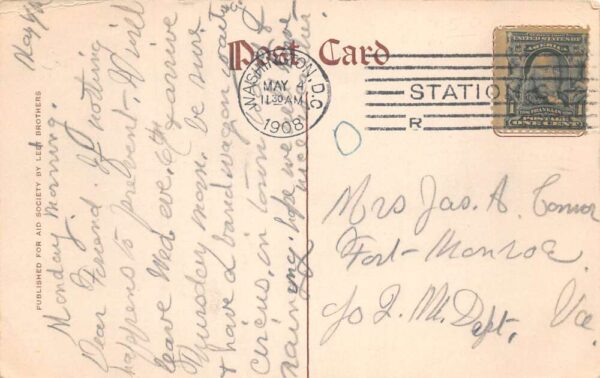 Post Card
WASHINGTON, D.C.
MAY 4
11 30 AM
1908
STATION
R
UNITED STATES OF
AMERICA
FRANKLIN
POSTAGE
ONE CENT
PUBLISHED FOR AID SOCIETY BY LEET BROTHERS
Monday Morning.
Dear Friend. If nothing
happens to prevent. Will
leave Wed. eve. 6th arrive
Thursday morn. be sure
& have a band wagon waiting
circus in town
raining. hope we
Mrs Jas. A. Connor
Fort-Monroe
c/o Q. M. Dept, Va.